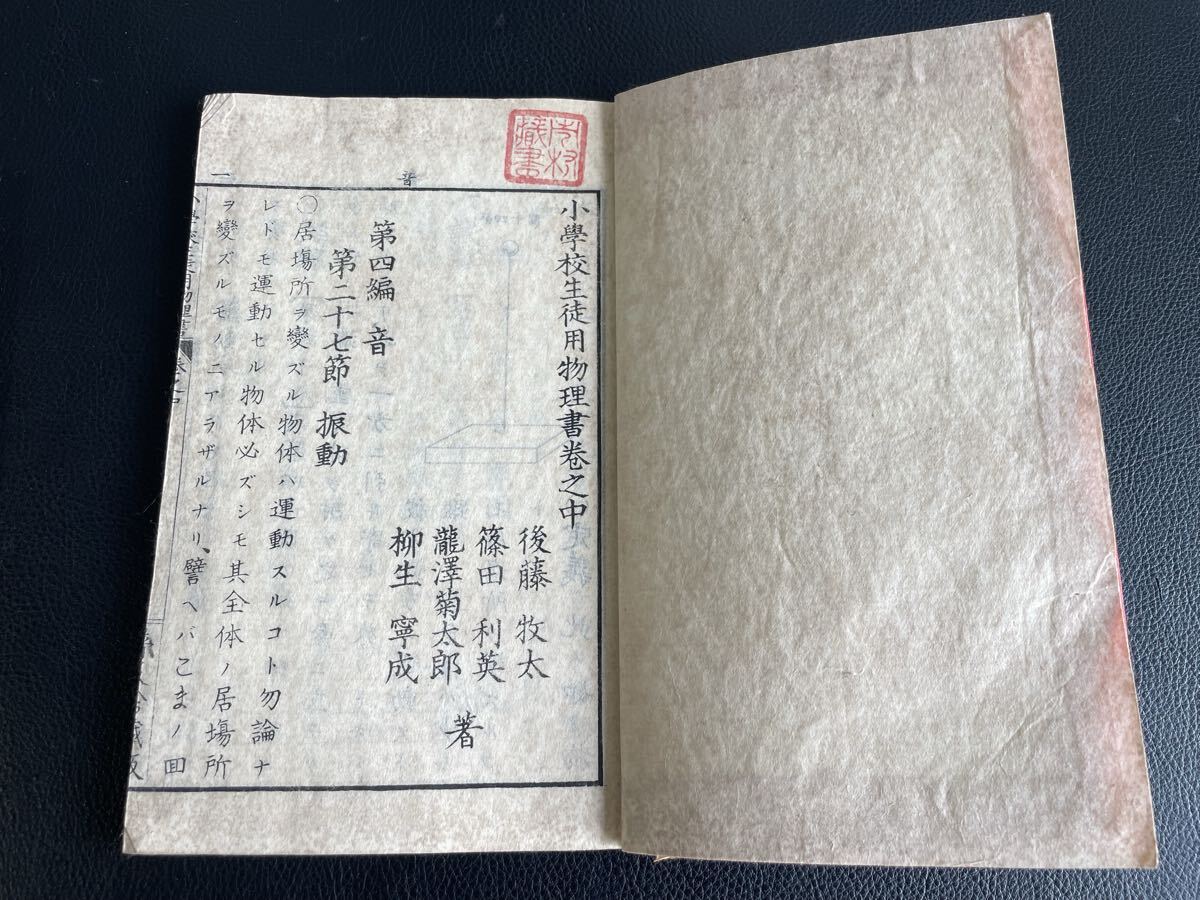 小學校生徒用物理書卷之中
後藤 牧太
篠田 利英
瀧澤菊太郎
柳生 寧成
著
第四編 音
第二十七節 振動
〇居塲所ヲ變ズル物体ハ運動スルコト勿論ナ
レドモ運動セル物体必ズシモ其全体ノ居塲所
ヲ變ズルモノニアラザルナリ、譬ヘバこまノ囬
音
一
藏書